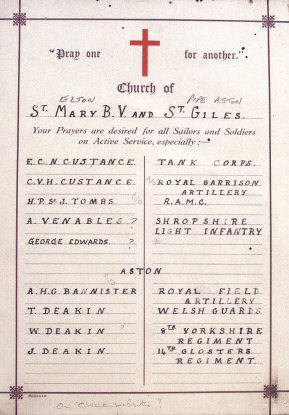 "Pray one for another."
Church of
ELTON PIPE ASTON
ST. MARY B.V. AND ST. GILES.
Your Prayers are desired for all Sailors and Soldiers
on Active Service, especially :—
E.C.N. CUSTANCE. TANK CORPS.
C.V.H. CUSTANCE. ROYAL GARRISON
ARTILLERY
H.P. ST J. TOMBS. R.A.M.C.
A. VENABLES ? SHROPSHIRE
LIGHT INFANTRY
GEORGE EDWARDS. ?
ASTON
A.H.G. BANNISTER ROYAL FIELD
ARTILLERY
T. DEAKIN WELSH GUARDS.
W. DEAKIN ? 8TH YORKSHIRE
REGIMENT
J. DEAKIN. 14TH GLOSTERS
REGIMENT.
On website ?